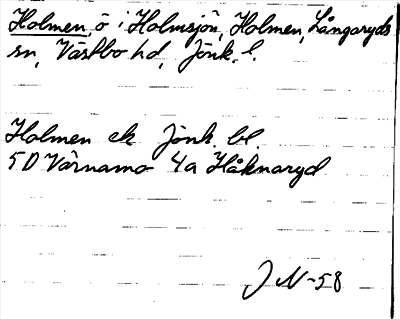 Holmen, ö i Holmsjön, Holmen, Långaryds
sn, Västbo hd, Jönk. l.
Holmen ek Jönk. bl.
5D Värnamo 4a Håknaryd
J N-58